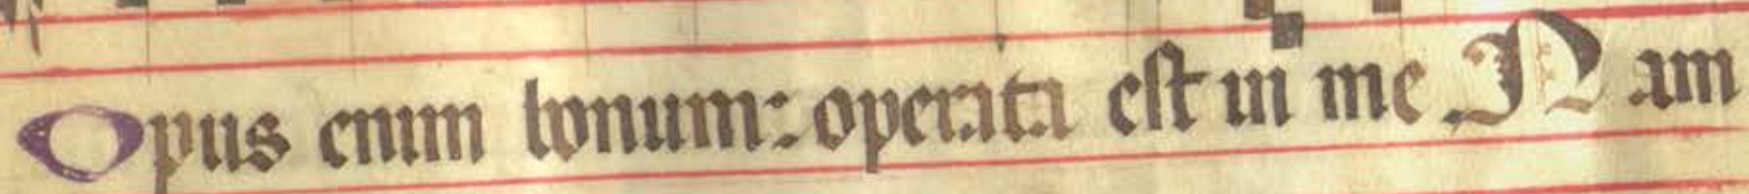 Opus enim bonum: operata est in me. Nam